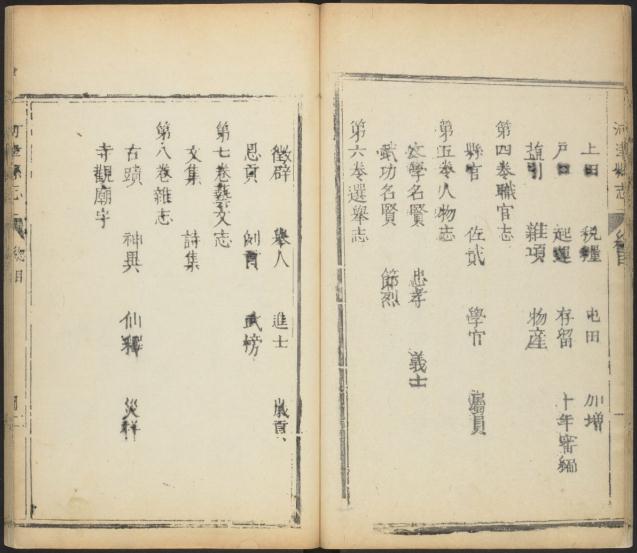 河津縣志 總目
土田 稅糧 屯田 加增
戶口 起運 存留 十年審編
鹽引 雜項 物產
第四卷職官志
縣官 佐貳 學官 屬員
第五卷人物志
文學名賢 忠孝 義士
武功名賢 節烈
第六卷選舉志
徵辟 舉人 進士 歲貢
恩貢 例貢 武榜
第七卷藝文志
文集 詩集
第八卷雜志
古蹟 神異 仙釋 災祥
寺觀廟宇
總目